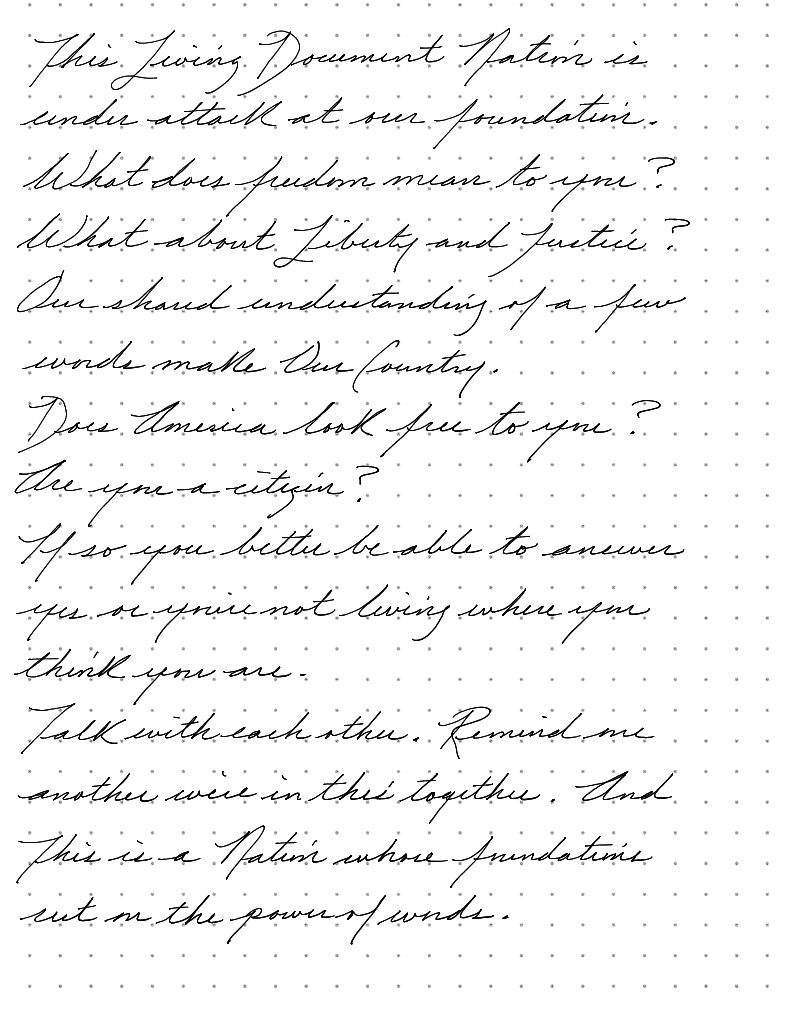 This Living Document Nation is
under attack at our foundation.
What does freedom mean to you?
What about Liberty and Justice?
Our shared understanding of a few
words make Our Country.
Does America look free to you?
Are you a citizen?
If so you better be able to answer
yes or you're not living where you
think you are.
Talk with each other. Remind one
another we're in this together. And
This is a Nation whose foundations
rest on the power of words.